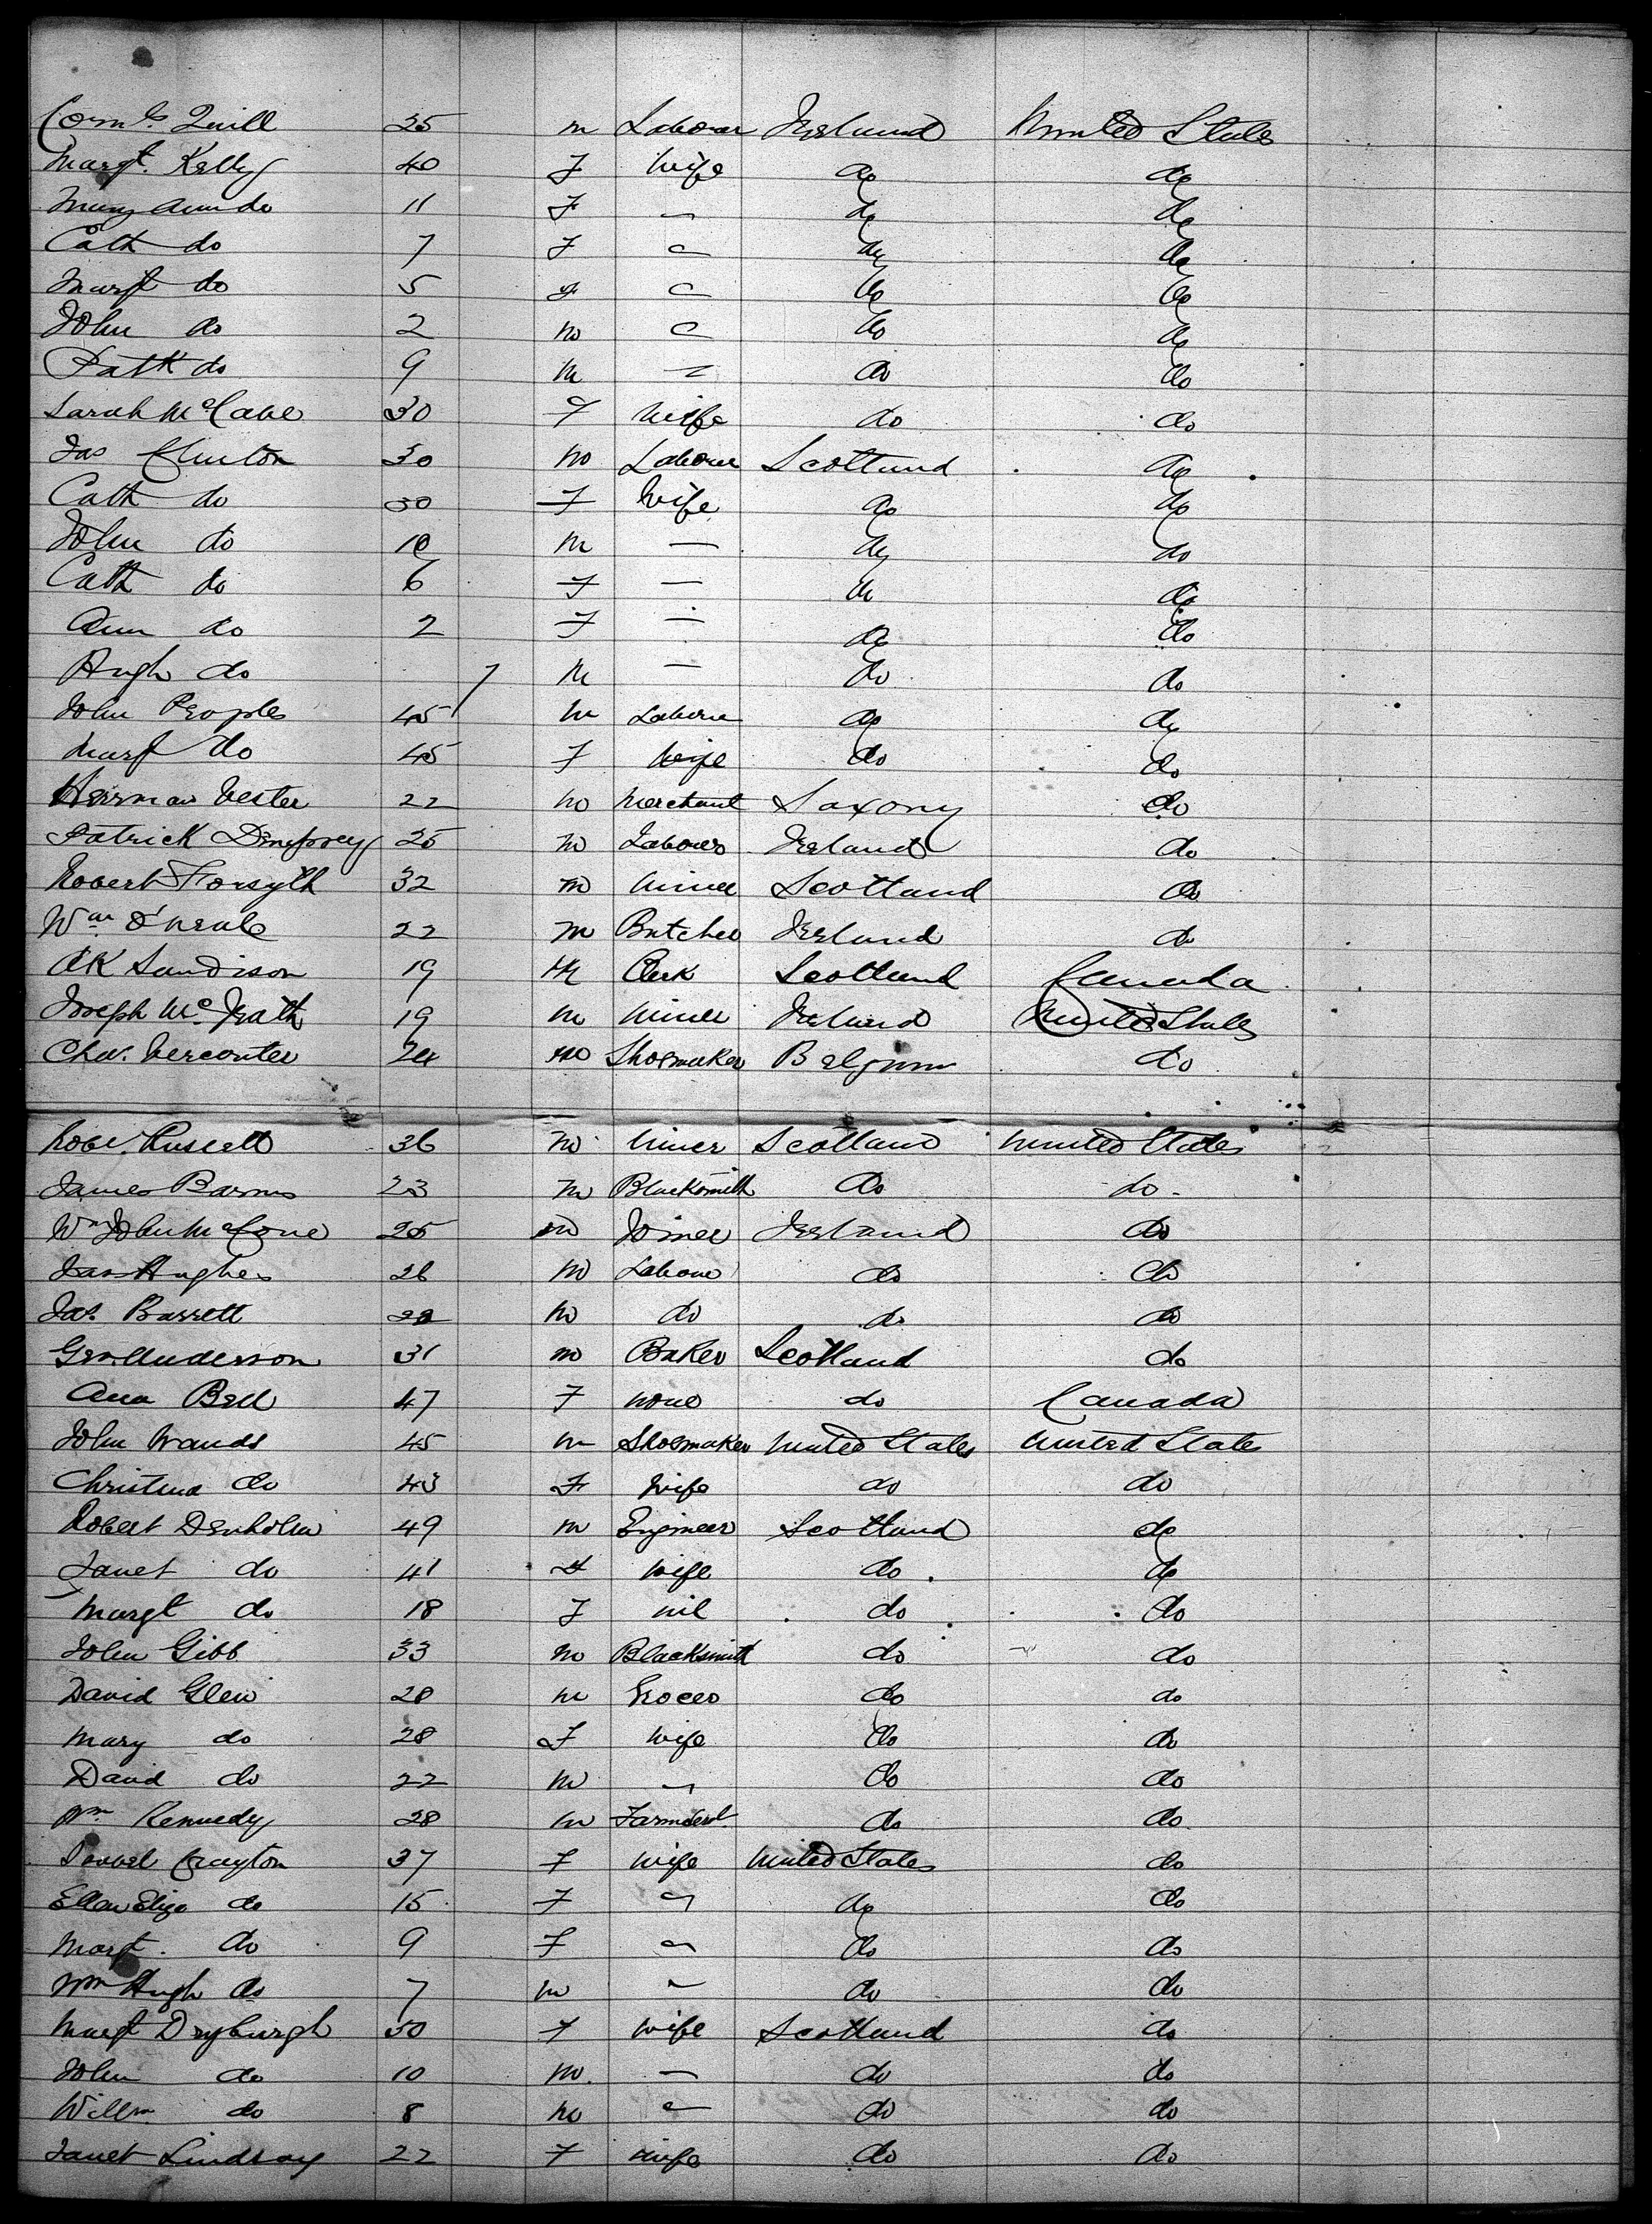 Corns. Quill 35 m Labourer Ireland United States
Margt. Kelly 40 F Wife do do
Mary Ann do 11 F — do do
Cath do 7 F — do do
Margt do 5 F — do do
John do 2 m — do do
Patk do 9 m — do do
Sarah McCabe 30 F Wife do do
Jas Clinton 30 m Labourer Scotland do
Cath do 30 F Wife do do
John do 10 m — do do
Cath do 6 F — do do
Ann do 2 F — do do
Hugh do 7 m — do do
John Peoples 45 m Labourer do do
Margt do 45 F Wife do do
Herman Vester 22 m Merchant Saxony do
Patrick Dempsey 25 m Labourer Ireland do
Robert Forsyth 32 m Miner Scotland do
Wm. O'Neale 22 m Butcher Ireland do
AK Sandison 19 m Clerk Scotland Canada
Joseph McGrath 19 m Miner Ireland United States
Chas. Vercouter 24 m Shoemaker Belgium do
Robt. Russell 36 m Miner Scotland United States
James Barns 23 m Blacksmith do do
Wm John McCone 25 m Joiner Ireland do
Jas Hughes 26 m Labourer do do
Jas. Barrett m do do do
Geo. Anderson 31 m Baker Scotland do
Ann Bell 47 F none do Canada
John Wands 45 m Shoemaker United States United States
Christina do 43 F Wife do do
Robert Denholm 49 m Engineer Scotland do
Janet do 41 F Wife do do
Margt do 18 F nil do do
John Gibb 33 m Blacksmith do do
David Glen 28 m Grocer do do
Mary do 28 F Wife do do
David do 22 m — do do
Wm. Kennedy 28 m do do
Isabel Crayton 37 F Wife United States do
Ellen Eliza do 15 F — do do
Margt. do 9 F — do do
Wm Hugh do 7 m — do do
Margt Dryburgh 30 F Wife Scotland do
John do 10 m. — do do
Willm do 8 m — do do
Janet Lindsay 22 F Wife do do